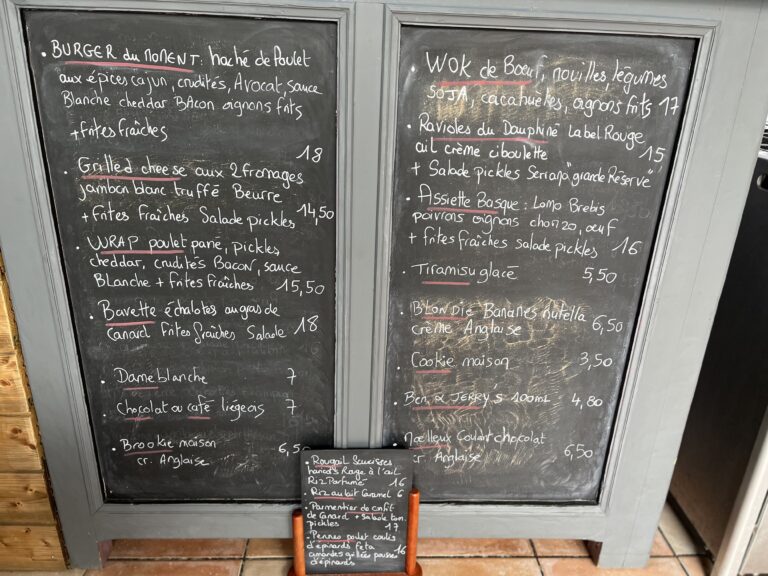 . BURGER du MOMENT : haché de Poulet
aux épices cajun, crudités, Avocat, sauce
Blanche cheddar BAcon oignons frits
+ frites fraîches 18
. Grilled cheese aux 2 fromages
jambon blanc truffé Beurre
+ frites fraîches Salade pickles 14,50
. WRAP poulet pané, pickles
cheddar, crudités BACON, sauce
Blanche + frites fraîches 15,50
. Bavette échalotes au gras de
Canard frites fraîches Salade 18
. Dame blanche 7
. Chocolat ou café liégeois 7
. Brookie maison
cr. Anglaise 6,50
. WOK de Bœuf, nouilles, légumes
SOJA, cacahuètes, oignons frits 17
. Ravioles du Dauphiné Label Rouge
ail crème ciboulette 15
+ Salade pickles Seriano "grande Réserve"
. Assiette Basque : Lomo Brebis
poivrons oignons chorizo, œuf
+ frites fraîches salade pickles 16
. Tiramisu glacé 5,50
. BLONDIE Bananes nutella
crème Anglaise 6,50
. Cookie maison 3,50
. Ben & JERRY'S 100mL 4,80
. Mœlleux Coulant chocolat
cr. Anglaise 6,50
. Rougail Saucisses
haricots Rouge à l'ail
Riz Parfumé 16
. Riz au lait Caramel 6
. Parmentier de confit
de Canard + Salade tom.
pickles 17
. Pennes poulet coulis
d'épinards feta
amandes grillées pousses
d'épinards 16